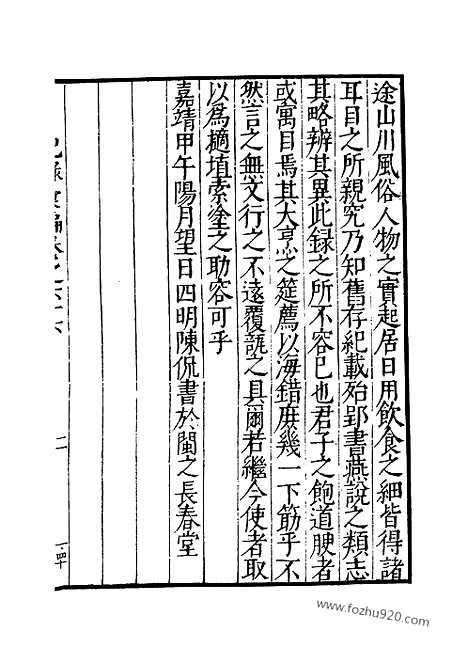 途山川風俗人物之實起居日用飲食之細皆得諸
耳目之所親究乃知舊存紀載殆郢書燕說之類志
其略辨其異此録之所不容已也君子之飽道腴者
或寓目焉其大烹之筵薦以海錯庶幾一下筯乎不
然言之無文行之不遠覆瓿之具爾若繼今使者取
以為擿埴索塗之助容可乎
嘉靖甲午陽月望日四明陳侃書於閩之長春堂
紀録彙編卷之六十六
二
www.fozhu920.com